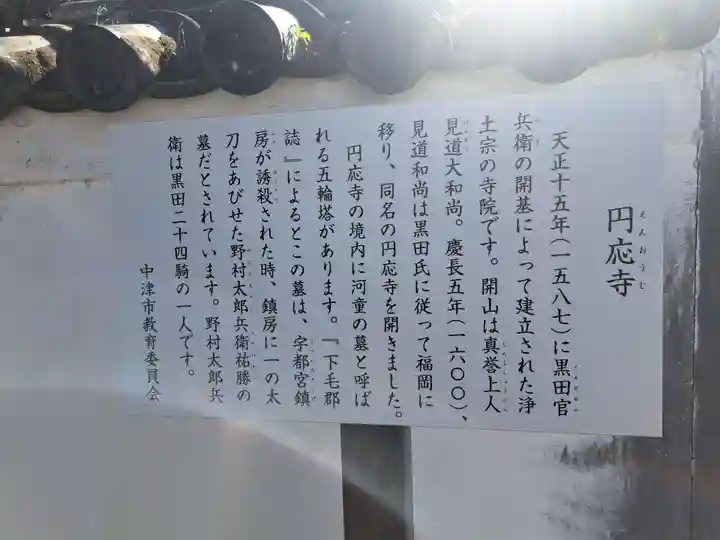 円応寺
えんおうじ
天正十五年(一五八七)に黒田官
兵衛の開基によって建立された浄
土宗の寺院です。開山は真誉上人
見道大和尚。慶長五年(一六〇〇)、
見道和尚は黒田氏に従って福岡に
移り、同名の円応寺を開きました。
円応寺の境内に河童の墓と呼ば
れる五輪塔があります。『下毛郡
誌』によるとこの墓は、宇都宮鎮
房が誘殺された時、鎮房に一の太
刀をあびせた野村太郎兵衛祐勝の
墓だとされています。野村太郎兵
衛は黒田二十四騎の一人です。
中津市教育委員会